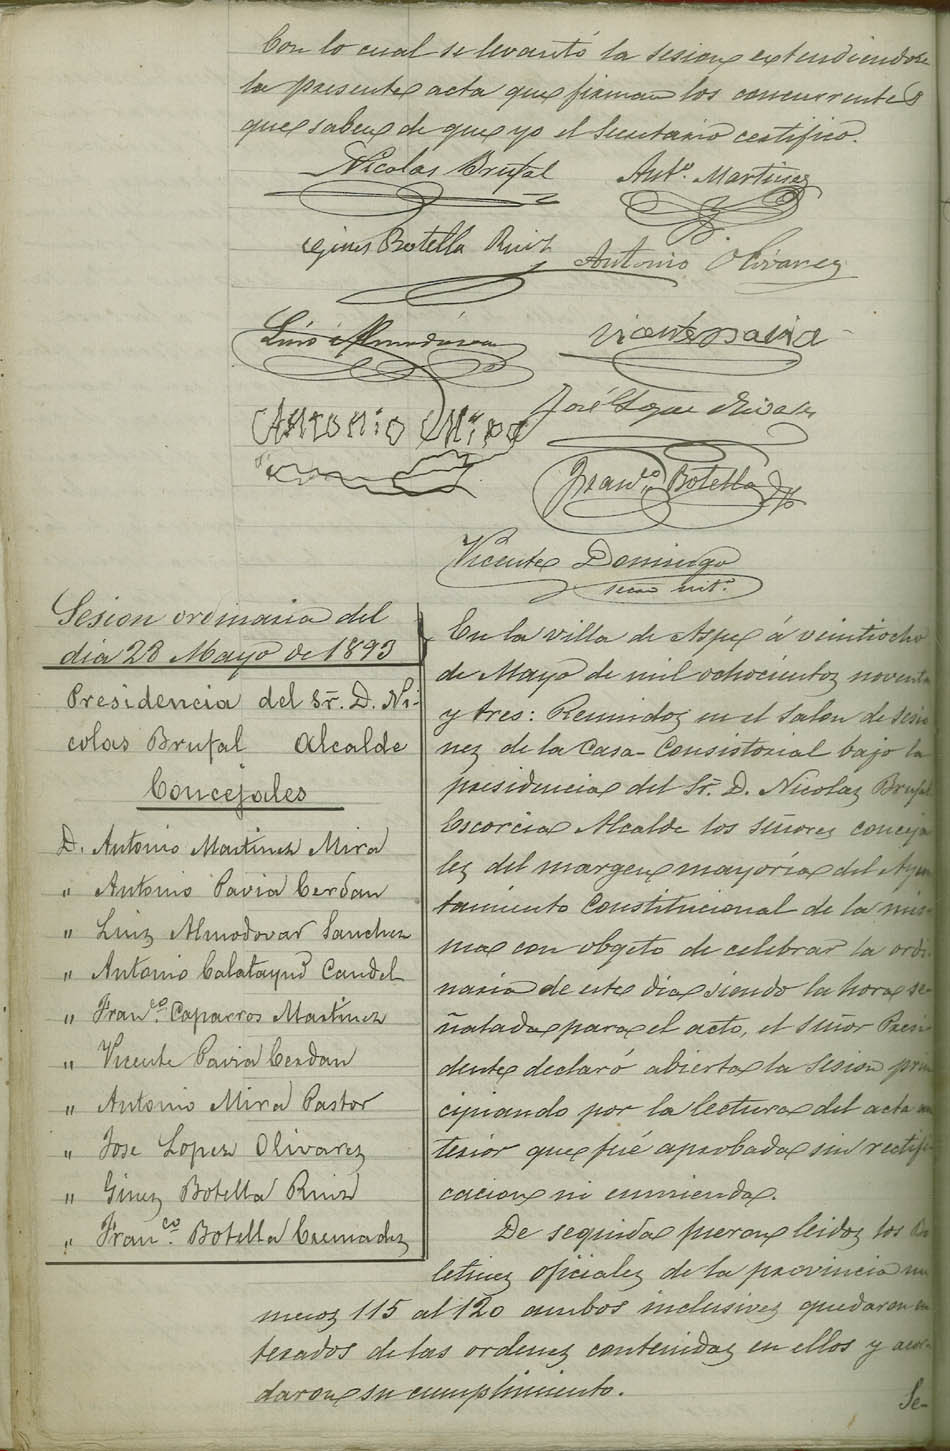 Con lo cual se levantó la sesion extendiendose
la presente acta que firman los concurrentes
que saben de que yo el Secretario certifico.
Nicolas Brufal
Antº. Martinez
Gines Botella Ruiz
Antonio Olivarez
Luis Almodóvar
Vicente Pavia
José Lopez Olivares
Antonio Mira
Franco. Botella
Vicente Domingo
Sesion ordinaria del
dia 28 Mayo de 1893
Presidencia del Sr. D. Ni-
colas Brufal Alcalde
Concejales
D. Antonio Martinez Mira
" Antonio Pavia Cerdan
" Luiz Almodovar Sanchez
" Antonio Calatayud Candel
" Franco. Caparros Martinez
" Vicente Pavia Cerdan
" Antonio Mira Pastor
" Jose Lopez Olivarez
" Ginez Botella Ruiz
" Franco. Botella Cremadez
En la villa de Aspe á veintiocho
de Mayo de mil ochocientos noventa
y tres: Reunidoz en el salon de sesio
nez de la Casa-Consistorial bajo la
presidencia del Sr. D. Nicolaz Brufal
Escorcia Alcalde los señorez conceja
lez del margen mayoría del Ayun
tamiento Constitucional de la mis-
ma con obgeto de celebrar la ordi-
naria de este dia siendo la hora se-
ñalada para el acto, el señor Presi
dente declaró abierta la sesion prin
cipiando por la lectura del acta an
terior que fué aprobada sin rectifi
cacion ni enmienda.
De seguida fueron leidoz los Bo
letinez oficialez de la provincia nu
meroz 115 al 120 ambos inclusivez quedaron en
terados de las ordenez contenidaz en ellos y acor-
daron su cumplimiento.
Se-